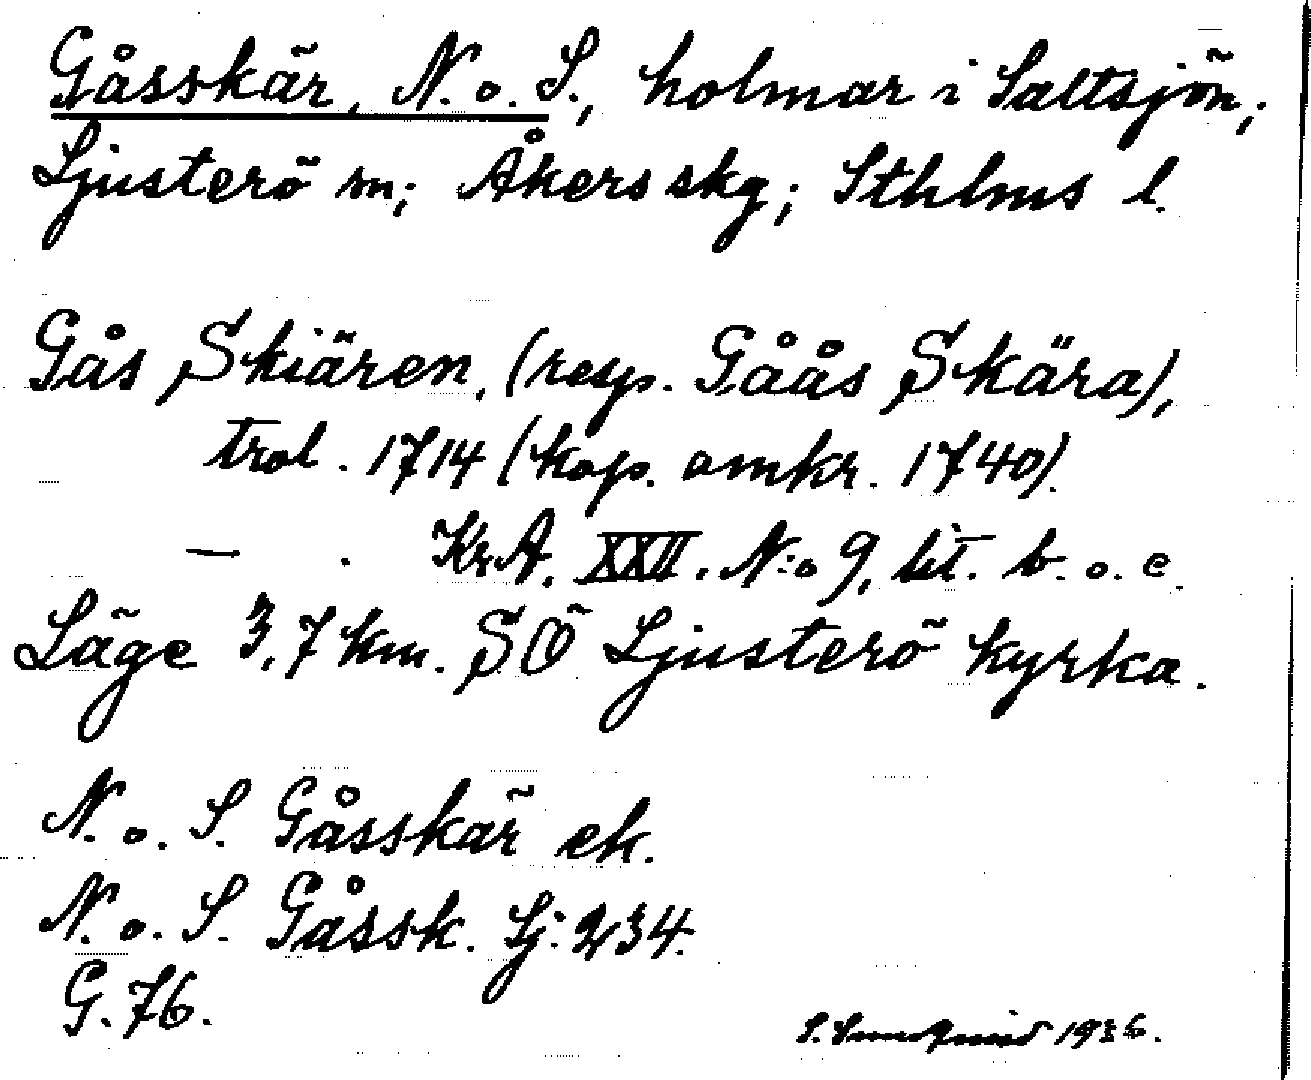 Gåsskär, N. o. S., holmar i Saltsjön;
Ljusterö sn; Åkers skg; Sthlms l.
Gås Skiären, (resp. Gåås Skära),
trol. 1714 (kop. omkr. 1740).
— . KrA. XXII. N:o 9, lit. b. o. c.
Läge 3,7 km. SÖ Ljusterö kyrka.
N. o. S. Gåsskär ek.
N. o. S. Gåssk. Sj: 234.
G. 76.
S. 1936.